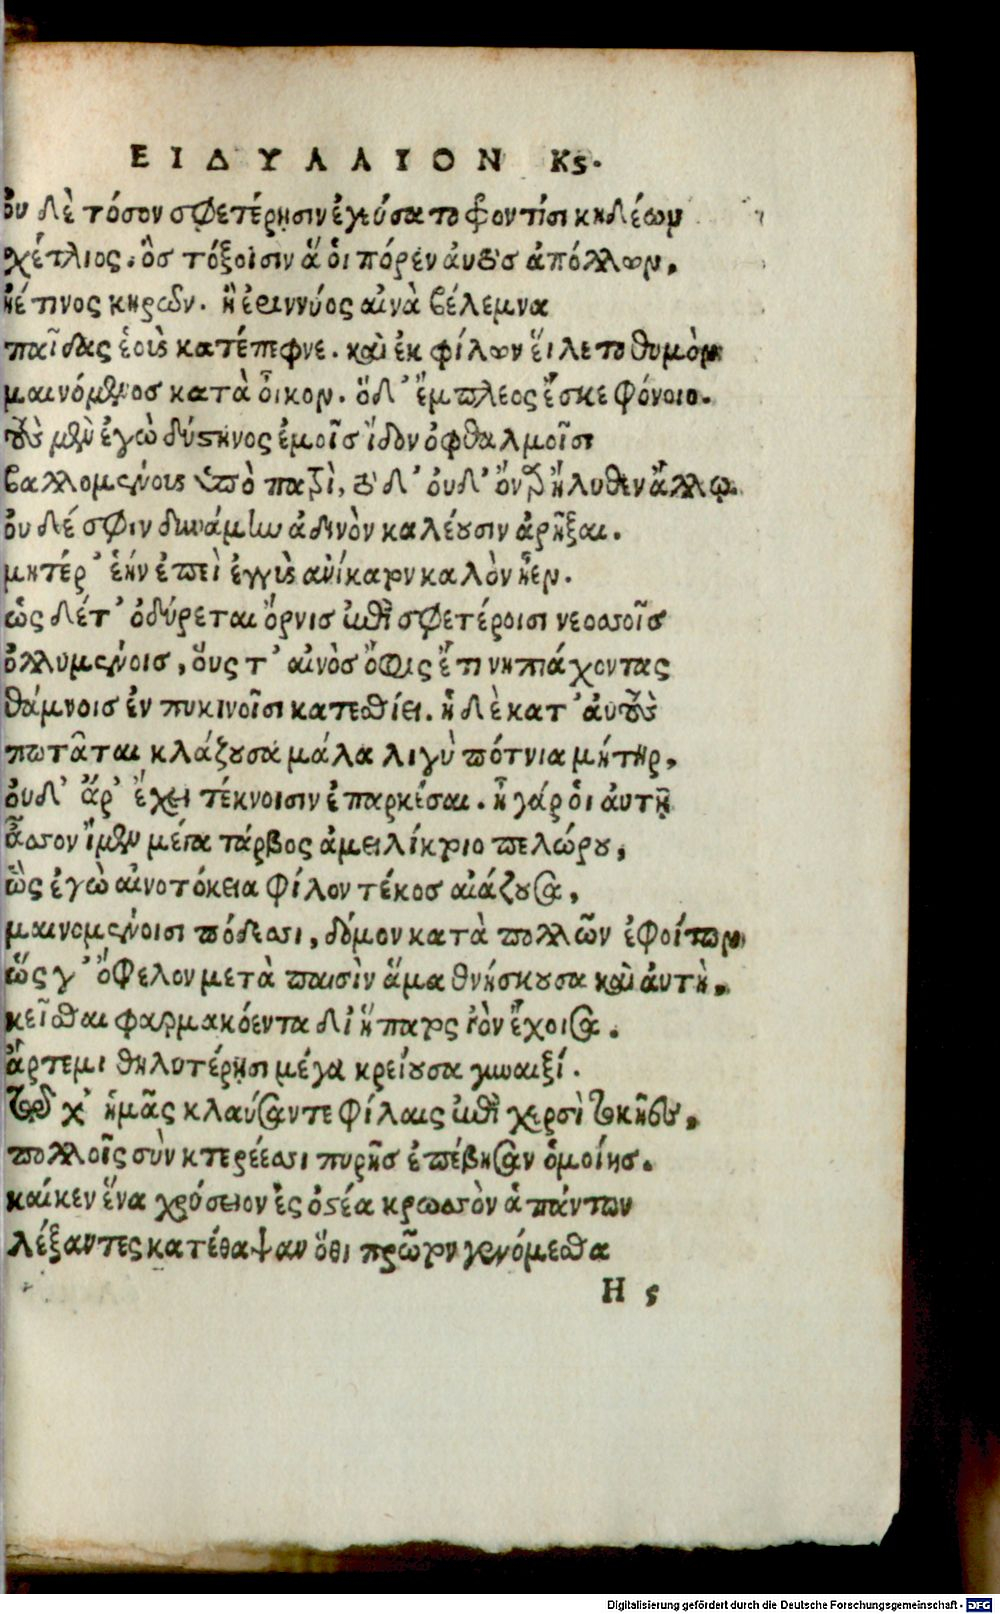 ΕΙΔΥΛΛΙΟΝ Κϛ.
ὀυ δὲ τόσον σφετέρῃσιν ἐγείνατο φροντίσι κηδέων
χέτλιος. ὃς τόξοισιν ἅ ὁι πόρεν ἀυτὸς ἀπόλλων,
ἠέ τινος κηρῶν. ἢ ἐριννύος αἰνὰ βέλεμνα
παῖδας ἑοὺς κατέπεφνε. καὶ ἐκ φίλων ἕιλετο θυμὸν
μαινόμενος κατὰ ὃικον. ὅδ' ἔμπλεος ἔσκε φόνοιο.
τοὺς μὲν ἐγὼ δύστηνος ἐμοῖς ἴδον ὀφθαλμοῖσι
βαλλομένους ὑπὸ πατρὶ, τὸ δ' ὀυδ' ὄναρ ἤλυθεν ἄλλῳ.
ὀυ δέ σφιν δυνάμην ἀδινὸν καλέουσιν ἀρῆξαι.
μητέρ' ἑήν ἐπεὶ ἐγγὺς ἀνίκατον καλὸν ἦεν.
ὡς δέ τ' ὀδύρεται ὄρνις ἐπὶ σφετέροισι νεοσσοῖς
ὀλλυμένοις, ὅυς τ' αἰνὸς ὄφις ἔτι νηπιάχοντας
θάμνοις ἐν πυκινοῖσι κατεσθίει. ἡ δὲ κατ' ἀυτοὺς
πωτᾶται κλάζουσα μάλα λιγὺ πότνια μήτηρ,
ὀυδ' ἄρ' ἔχει τέκνοισιν ἐπαρκέσαι. ἦ γάρ ὁι ἀυτῇ
ἆσσον ἴμεν μέγα τάρβος ἀμειλίκτοιο πελώρου,
ὣς ἐγὼ αἰνοτόκεια φίλον τέκος αἰάζουσα,
μαινομένοισι πόδεσσι, δόμον κατὰ πολλῶν ἐφοίτων
ὥς γ' ὄφελον μετὰ παισὶν ἅμα θνήσκουσα καὶ ἀυτὴ,
κεῖσθαι φαρμακόεντα δι' ἥπατος ἰὸν ἔχοισα.
ἄρτεμι θηλυτέρῃσι μέγα κρείουσα γυναιξί.
τῷ χ' ἡμᾶς κλαύσαντε φίλαις ἐπὶ χερσὶ τοκῆες,
πολλοῖς σὺν κτερέεσσι πυρῆς ἐπέβησαν ὁμοίης.
καίκεν ἕνα χρύσειον ἐς ὀστέα κρωσσὸν ἁπάντων
λέξαντες κατέθαψαν ὅθι πρῶτον γενόμεσθα
Η ς
Digitalisierung gefördert durch die Deutsche Forschungsgemeinschaft - DFG